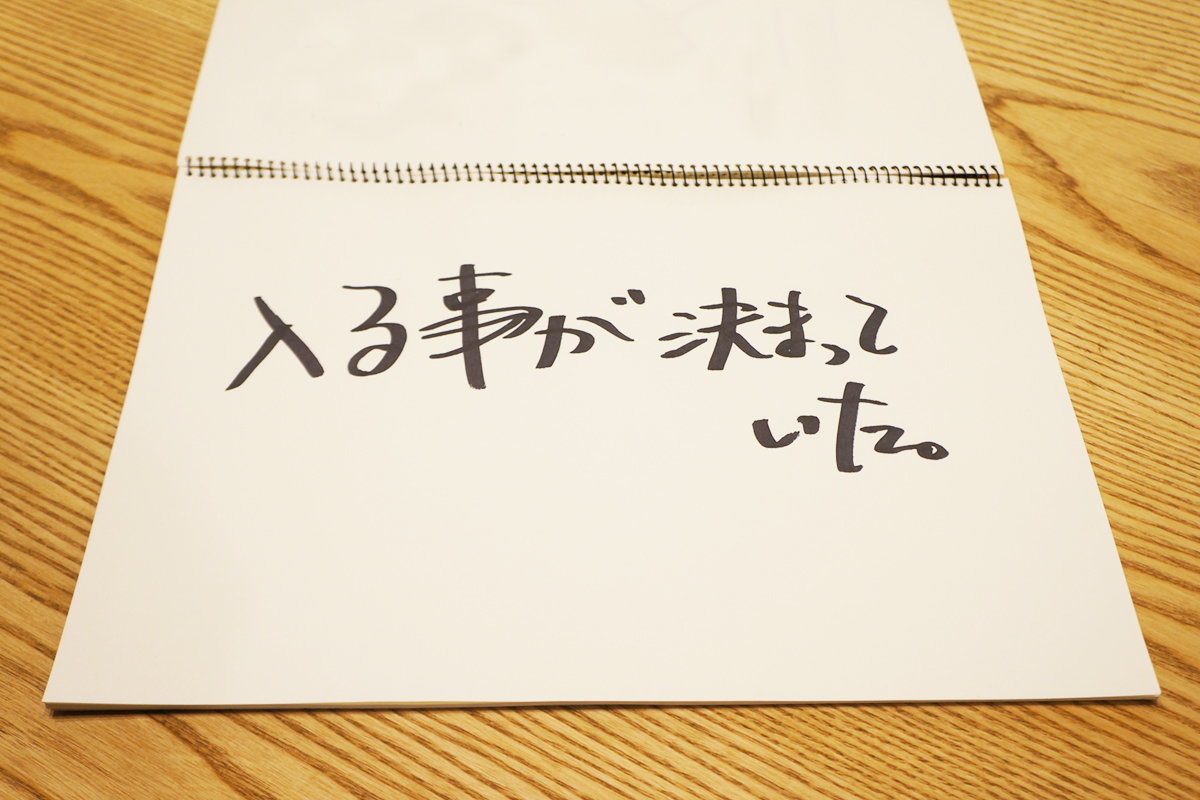 入る事が決まって
いた。